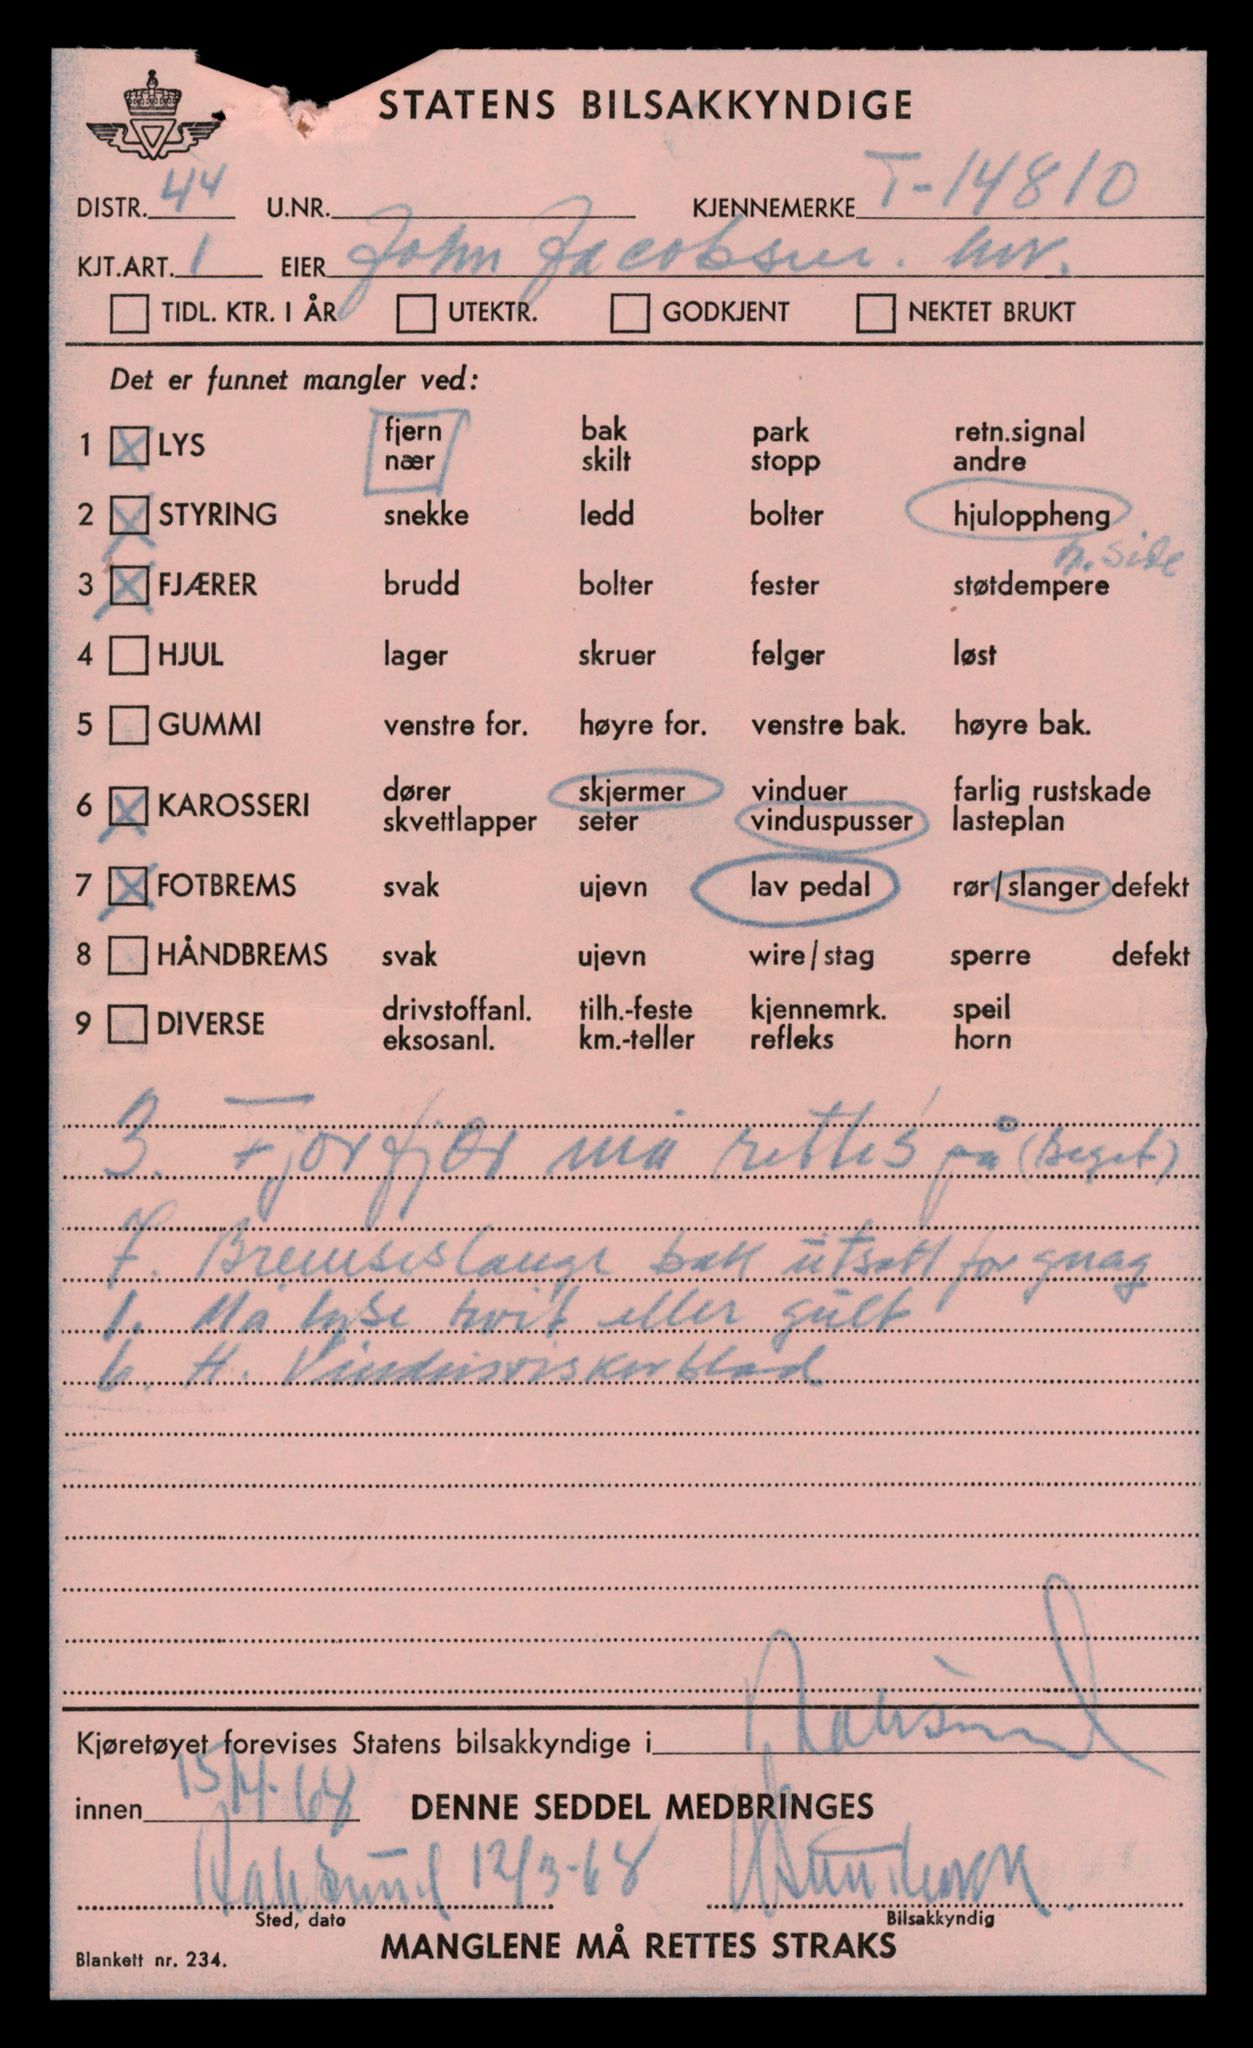 STATENS BILSAKKYNDIGE
DISTR. 44 U.NR. KJENNEMERKE T-14810
KJT.ART. 1 EIER John Jacobsen.
TIDL. KTR. I ÅR UTEKTR. GODKJENT NEKTET BRUKT
Det er funnet mangler ved:
1 X LYS fjern bak park retn.signal
nær skilt stopp andre
2 X STYRING snekke ledd bolter hjuloppheng
h. side
3 X FJÆRER brudd bolter fester støtdempere
4 HJUL lager skruer felger løst
5 GUMMI venstre for. høyre for. venstre bak. høyre bak.
6 X KAROSSERI dører skjermer vinduer farlig rustskade
skvettlapper seter vinduspusser lasteplan
7 X FOTBREMS svak ujevn lav pedal rør/slanger defekt
8 HÅNDBREMS svak ujevn wire/stag sperre defekt
9 DIVERSE drivstoffanl. tilh.-feste kjennemrk. speil
eksosanl. km.-teller refleks horn
3. må rettes på (Beget)
7. Bremseslange bak utsatt for gnag
1. Må lyse hvit eller gult
6. H. Vindusviskerblad
Kjøretøyet forevises Statens bilsakkyndige i Batnfjord
innen 15/4-68 DENNE SEDDEL MEDBRINGES
12/3-68
Sted, dato Bilsakkyndig
MANGLENE MÅ RETTES STRAKS
Blankett nr. 234.